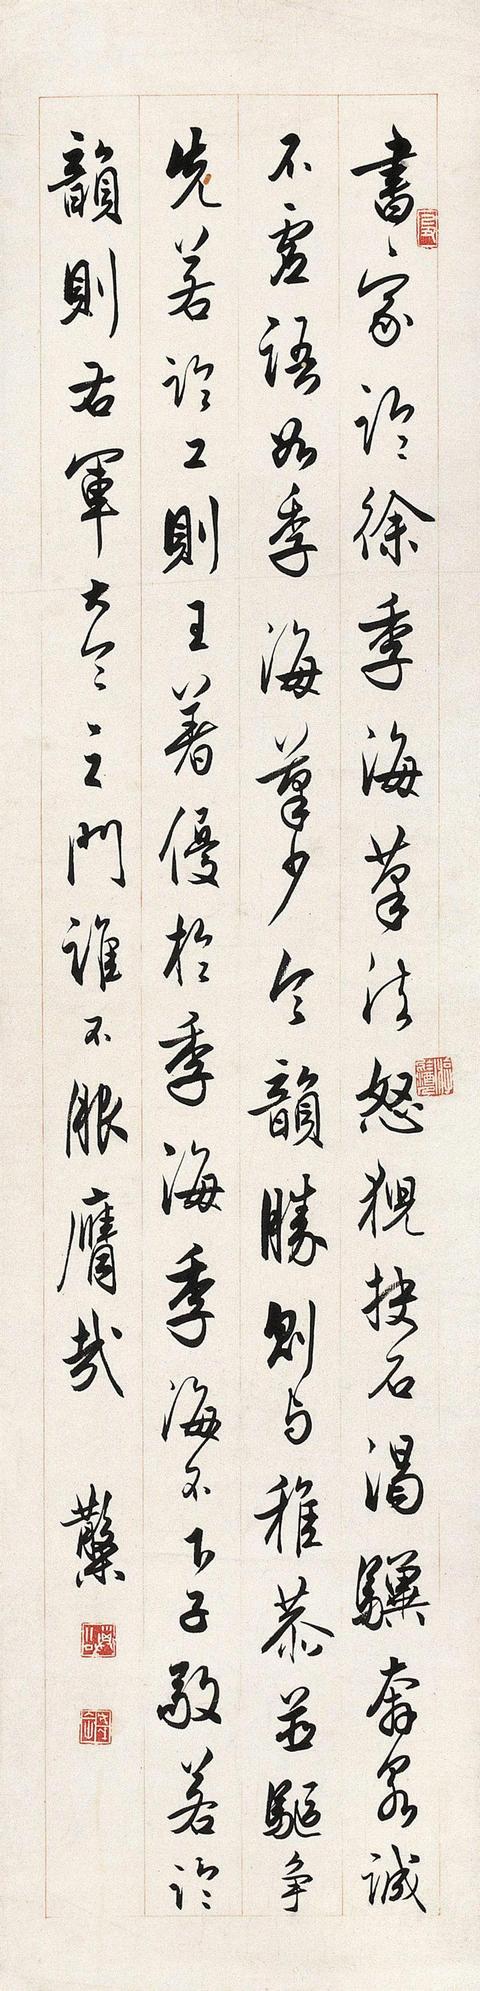 書家論徐季海筆法怒猊抉石渴驥奔泉誠
不虛語如季海筆少令韻勝則與稚恭並驅爭
先若論工則王著優於季海季海不下子敬若論
韻則右軍大令之門誰不服膺哉